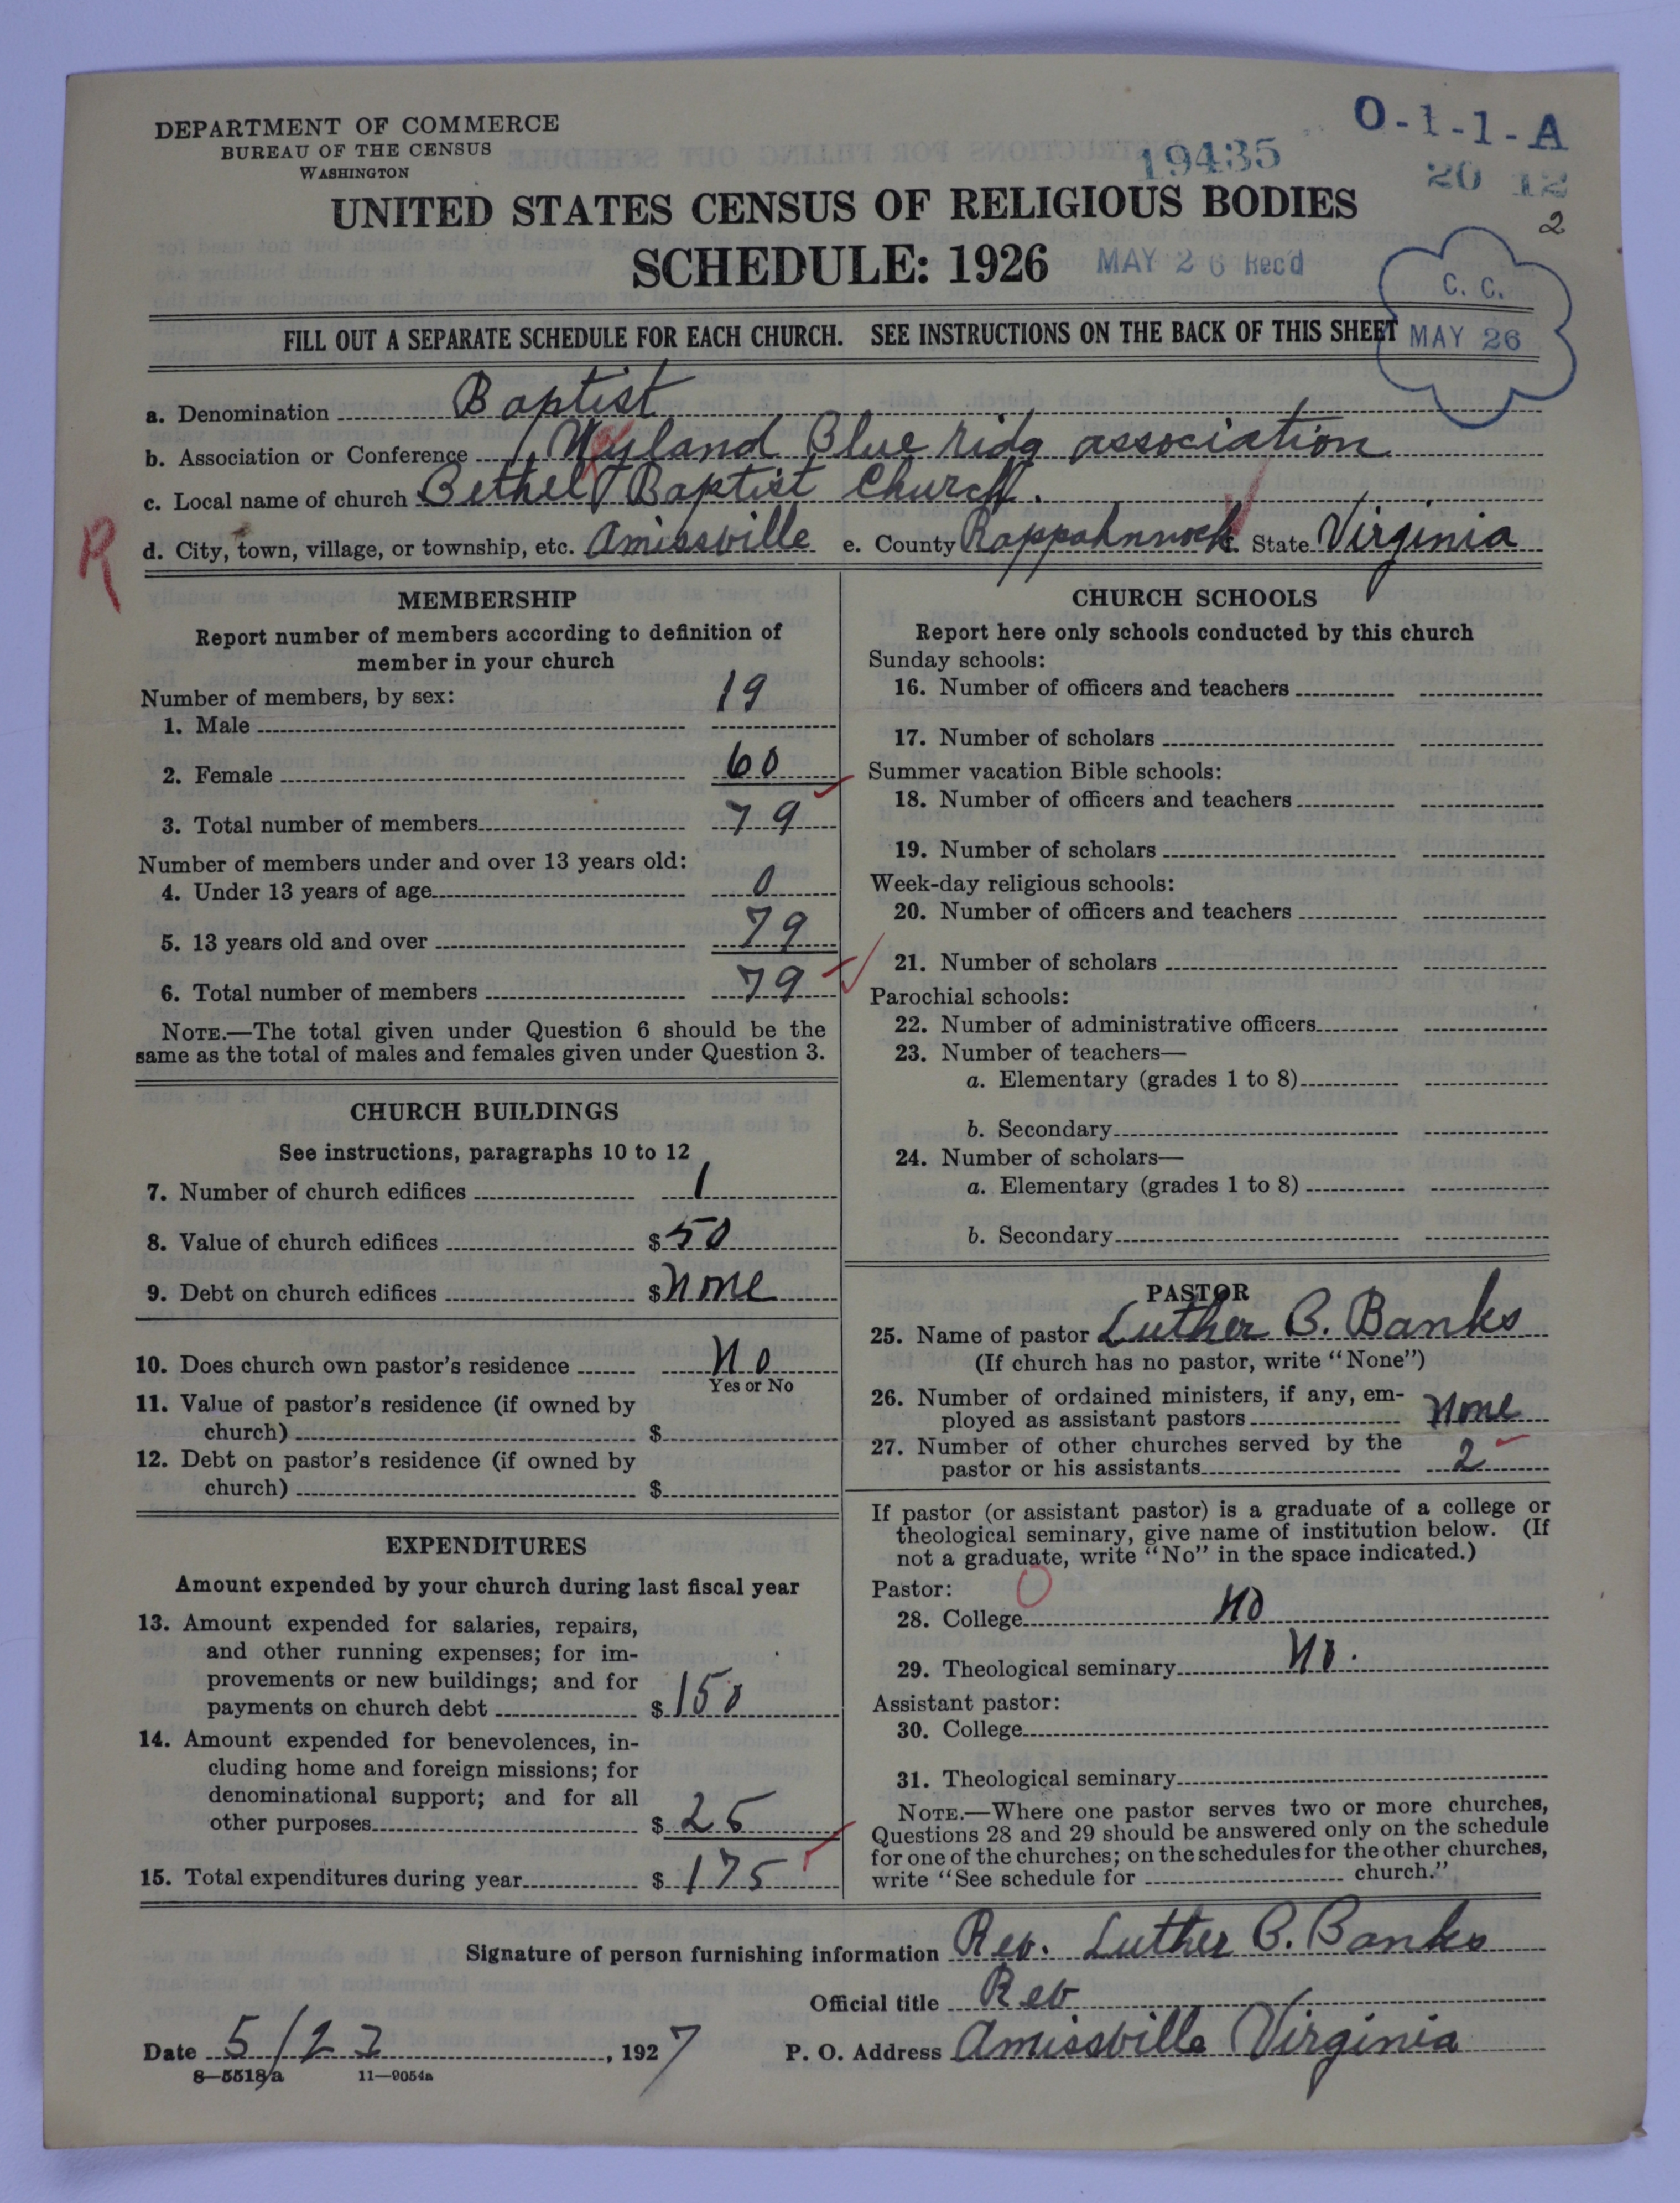 DEPARTMENT OF COMMERCE
BUREAU OF THE CENSUS
WASHINGTON
O-1-1-A
19435
20 12
2
UNITED STATES CENSUS OF RELIGIOUS BODIES
SCHEDULE: 1926
MAY 26 Rec'd
C. C.
MAY 26
FILL OUT A SEPARATE SCHEDULE FOR EACH CHURCH. SEE INSTRUCTIONS ON THE BACK OF THIS SHEET
a. Denomination Baptist
b. Association or Conference Wayland Blue ridg association
c. Local name of church Bethel Baptist Church.
R
d. City, town, village, or township, etc. Amissville e. County Rappahnnock f. State Virginia
MEMBERSHIP
Report number of members according to definition of
member in your church
Number of members, by sex:
1. Male 19
2. Female 60
3. Total number of members 79
Number of members under and over 13 years old:
4. Under 13 years of age 0
5. 13 years old and over 79
6. Total number of members 79
NOTE.—The total given under Question 6 should be the
same as the total of males and females given under Question 3.
CHURCH BUILDINGS
See instructions, paragraphs 10 to 12
7. Number of church edifices 1
8. Value of church edifices $50
9. Debt on church edifices $none
10. Does church own pastor's residence No
Yes or No
11. Value of pastor's residence (if owned by
church) $
12. Debt on pastor's residence (if owned by
church) $
EXPENDITURES
Amount expended by your church during last fiscal year
13. Amount expended for salaries, repairs,
and other running expenses; for im-
provements or new buildings; and for
payments on church debt $150
14. Amount expended for benevolences, in-
cluding home and foreign missions; for
denominational support; and for all
other purposes $25
15. Total expenditures during year $175
CHURCH SCHOOLS
Report here only schools conducted by this church
Sunday schools:
16. Number of officers and teachers
17. Number of scholars
Summer vacation Bible schools:
18. Number of officers and teachers
19. Number of scholars
Week-day religious schools:
20. Number of officers and teachers
21. Number of scholars
Parochial schools:
22. Number of administrative officers
23. Number of teachers—
a. Elementary (grades 1 to 8)
b. Secondary
24. Number of scholars—
a. Elementary (grades 1 to 8)
b. Secondary
PASTOR
25. Name of pastor Luther B. Banks
(If church has no pastor, write "None")
26. Number of ordained ministers, if any, em-
ployed as assistant pastors None
27. Number of other churches served by the
pastor or his assistants 2
If pastor (or assistant pastor) is a graduate of a college or
theological seminary, give name of institution below. (If
not a graduate, write "No" in the space indicated.)
Pastor:
28. College No
29. Theological seminary No.
Assistant pastor:
30. College
31. Theological seminary
NOTE.—Where one pastor serves two or more churches,
Questions 28 and 29 should be answered only on the schedule
for one of the churches; on the schedules for the other churches,
write "See schedule for church."
Signature of person furnishing information Rev. Luther B. Banks
Official title Rev
Date 5/23, 1927 P. O. Address Amissville Virginia
8—5518a 11—9054a